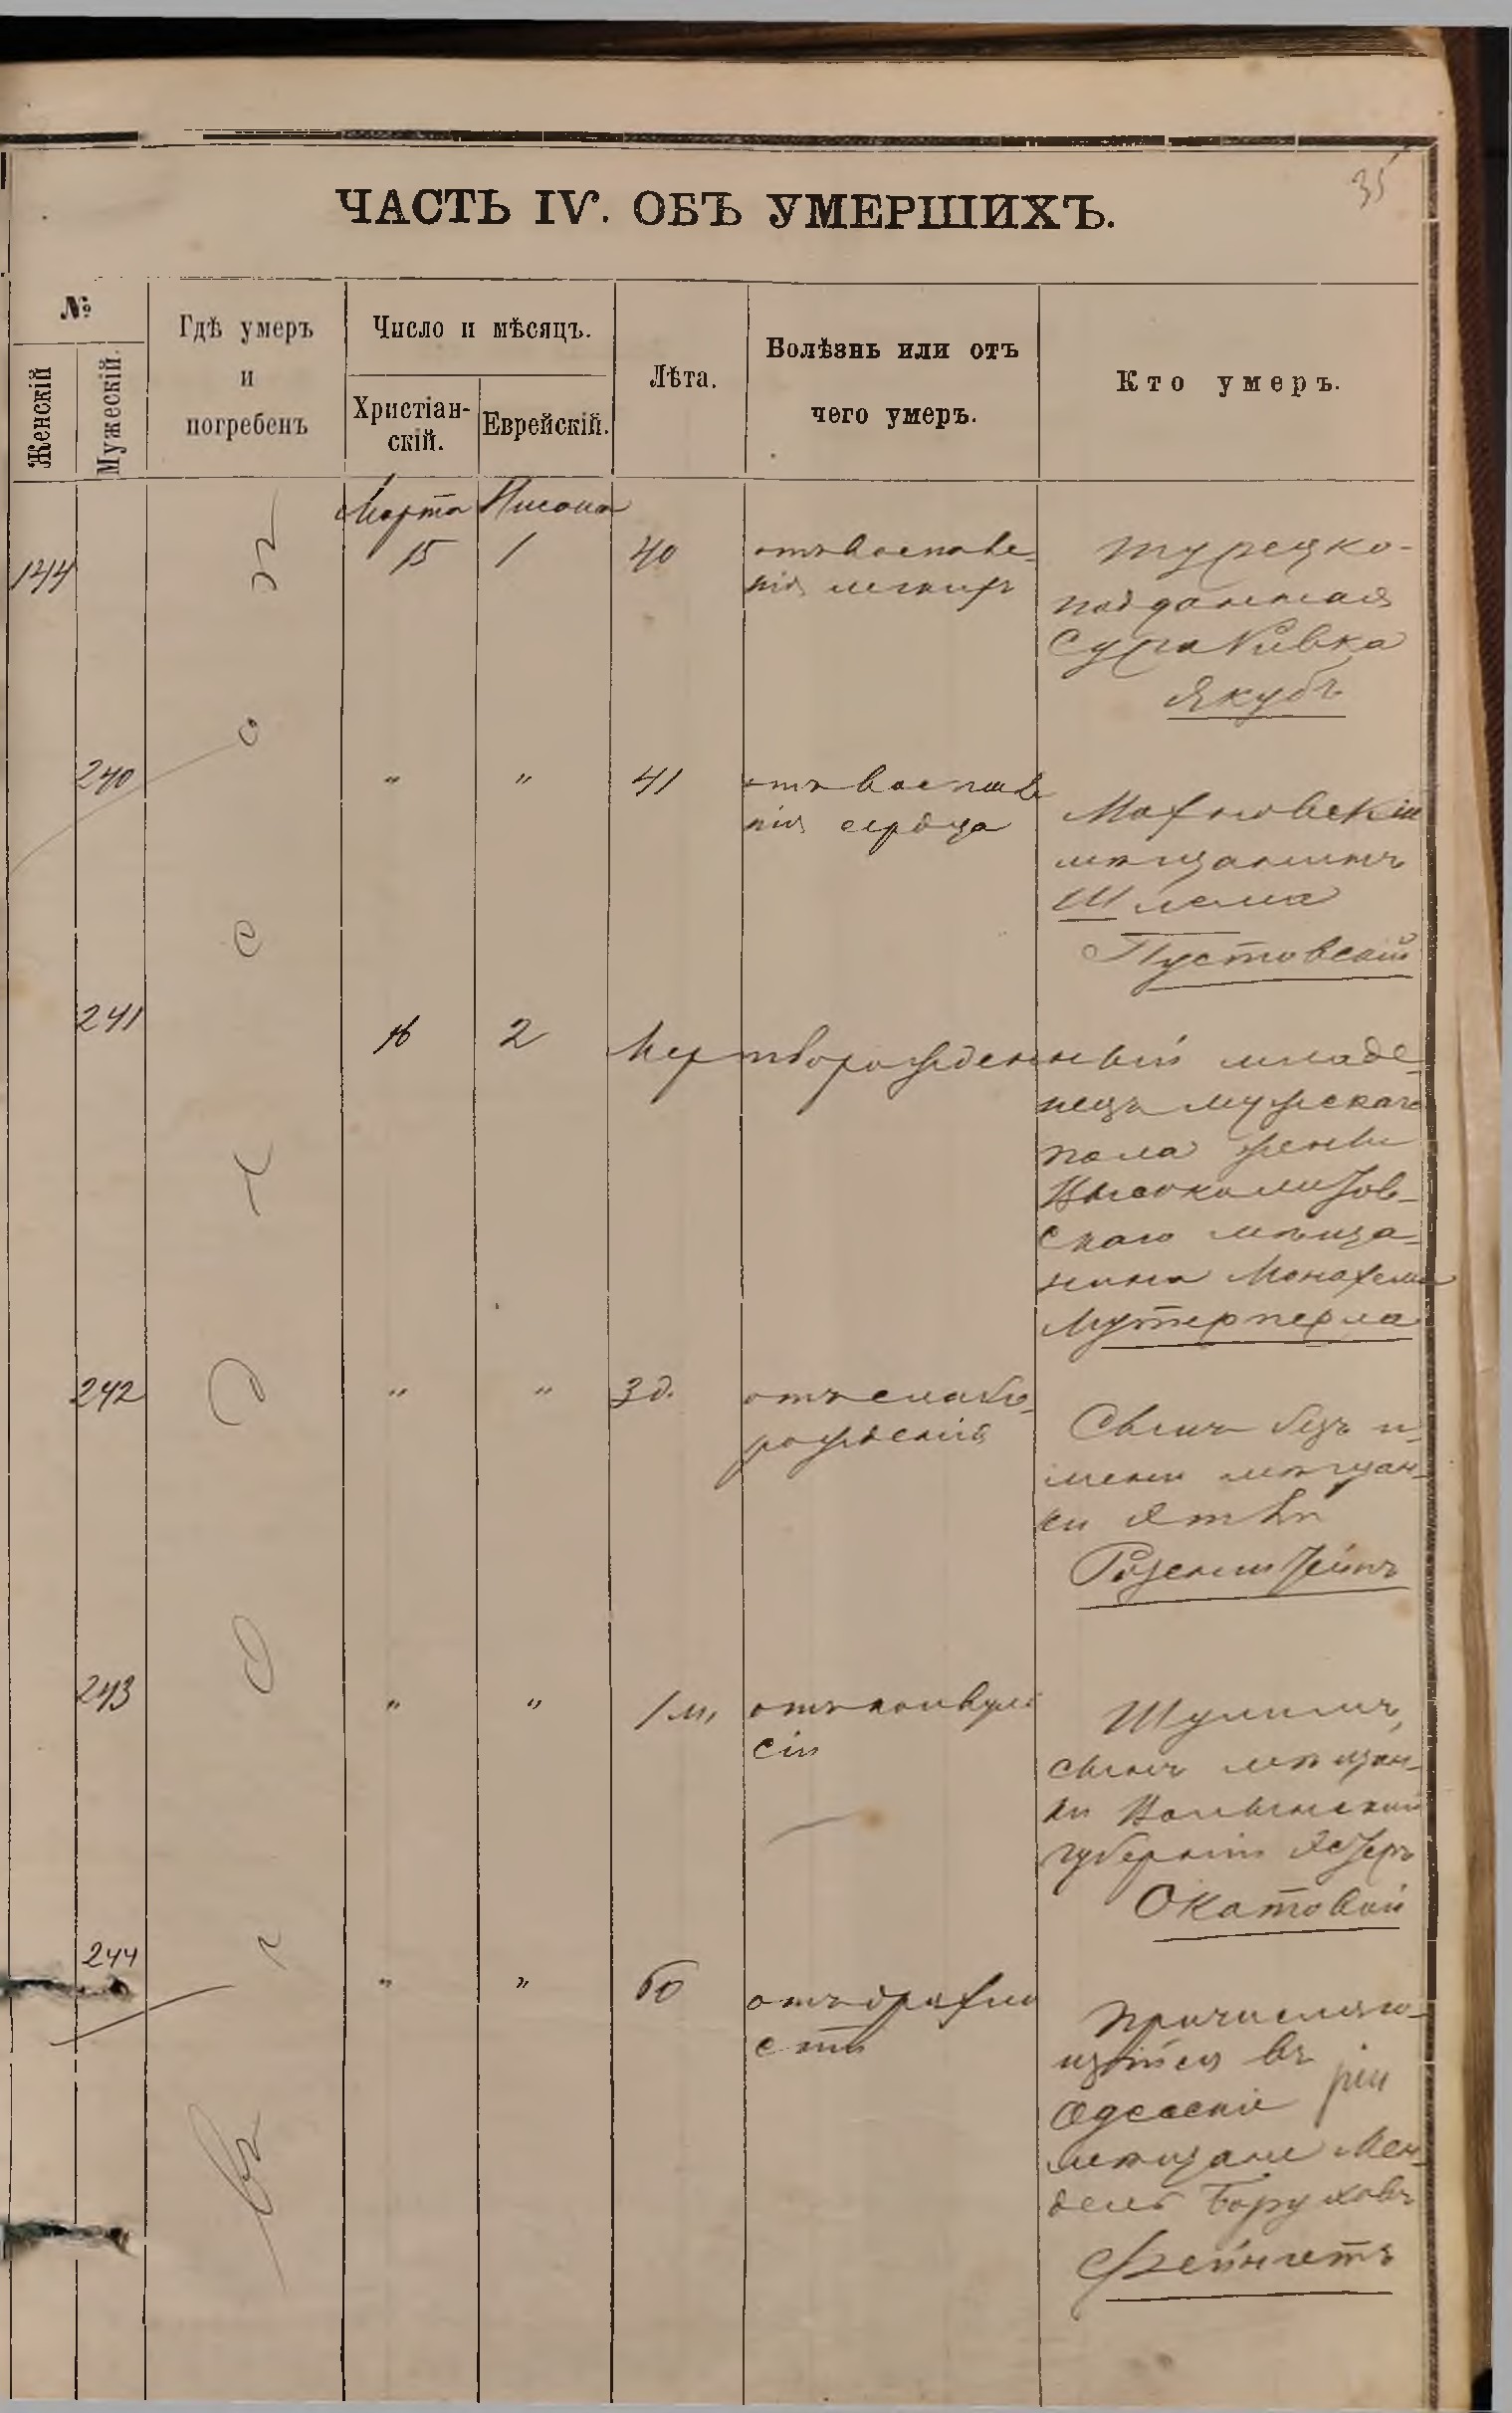 35
ЧАСТЬ IV. ОБЪ УМЕРШИХЪ.
№
Женскій
Мужескій.
Гдѣ умеръ
и
погребенъ
Число и мѣсяцъ.
Христіан-
скій.
Еврейскій.
Лѣта.
Болѣзнь или отъ
чего умеръ.
Кто умеръ.
Марта Нисана
144 15 1 40
отъ воспале-
нія легкихъ
Турецко-
подданная
Сура Ривка
Якубъ
240 " " 41
отъ воспале
нія сердца
Махновскій
мѣщанинъ
Шлема
Пустовскій
241 16 2 Мертворожденный младе-
нецъ мужскаго
пола жены
Высоколитов-
скаго мѣща-
нина Монахема
Мутерперла
242 " " 3 д.
отъ слабо-
рожденія
Сынъ безъ и-
мени мѣщан-
ки
Розенштейнъ
243 " " 1 м.
отъ конвуль
сіи
Шулимъ,
сынъ мѣщан-
ки Волынской
губерніи Эстеръ
Окатовой
244 " " 60
отъ дряхло
сти
Причисляю-
щійся въ
Одесскіе
мѣщане Мен-
дель Боруховъ
Фейнгетъ
въ Одессѣ